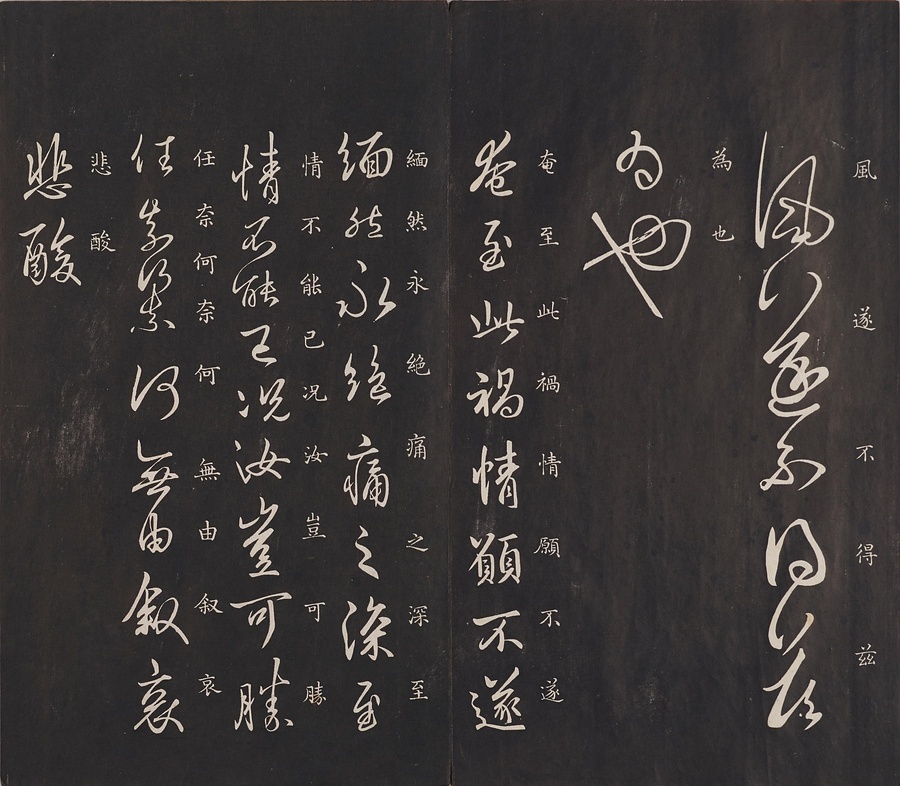 風遂不得茲
風遂不得茲
為也
為也
奄至此禍情願不遂
奄至此禍情願不遂
緬然永絶痛之深至
緬然永絶痛之深至
情不能已况汝豈可勝
情不能已况汝豈可勝
任奈何奈何無由叙哀
任奈何奈何無由叙哀
悲酸
悲酸